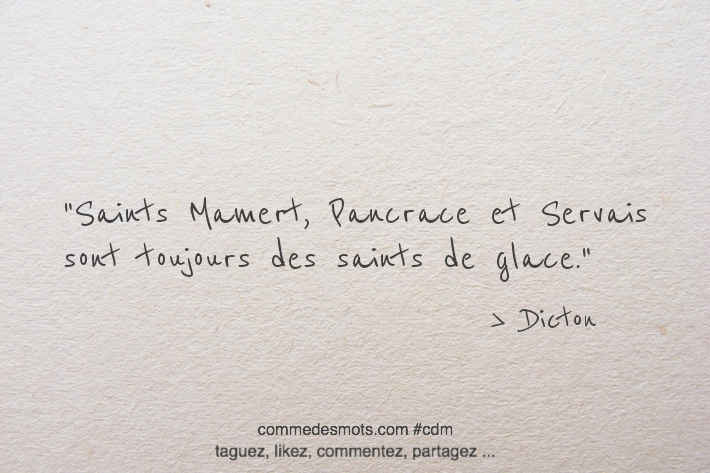 "Saints Mamert, Pancrace et Servais
sont toujours des saints de glace."
> Dicton
commedesmots.com #cdm
taguez, likez, commentez, partagez ...